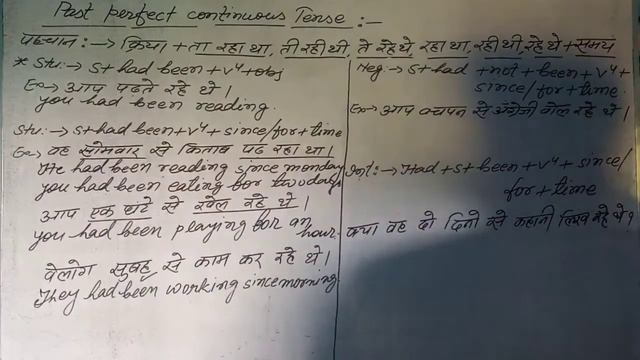 Past perfect continuous Tense :-
पहचान :-> क्रिया + ता रहा था, ती रही थी, ते रहे थे, रहा था, रही थी, रहे थे + समय
* Stu :-> S + had been + V⁴ + obj
Ex-> आप पढ़ते रहे थे।
you had been reading.
Stu :-> S + had been + V⁴ + since/for + time
Ex-> वह सोमवार से किताब पढ़ रहा था।
He had been reading since monday
you had been eating for two days
आप एक घंटे से खेल रहे थे।
you had been playing for an hour.
वे लोग सुबह से काम कर रहे थे।
They had been working since morning.
Neg :-> S + had + not + been + V⁴ +
since/for + time.
Ex-> आप बचपन से अंग्रेजी बोल रहे थे।
Int :-> Had + S + been + V⁴ + since/
for + time
क्या वह दो दिनो से कहानी लिख रहे थे?